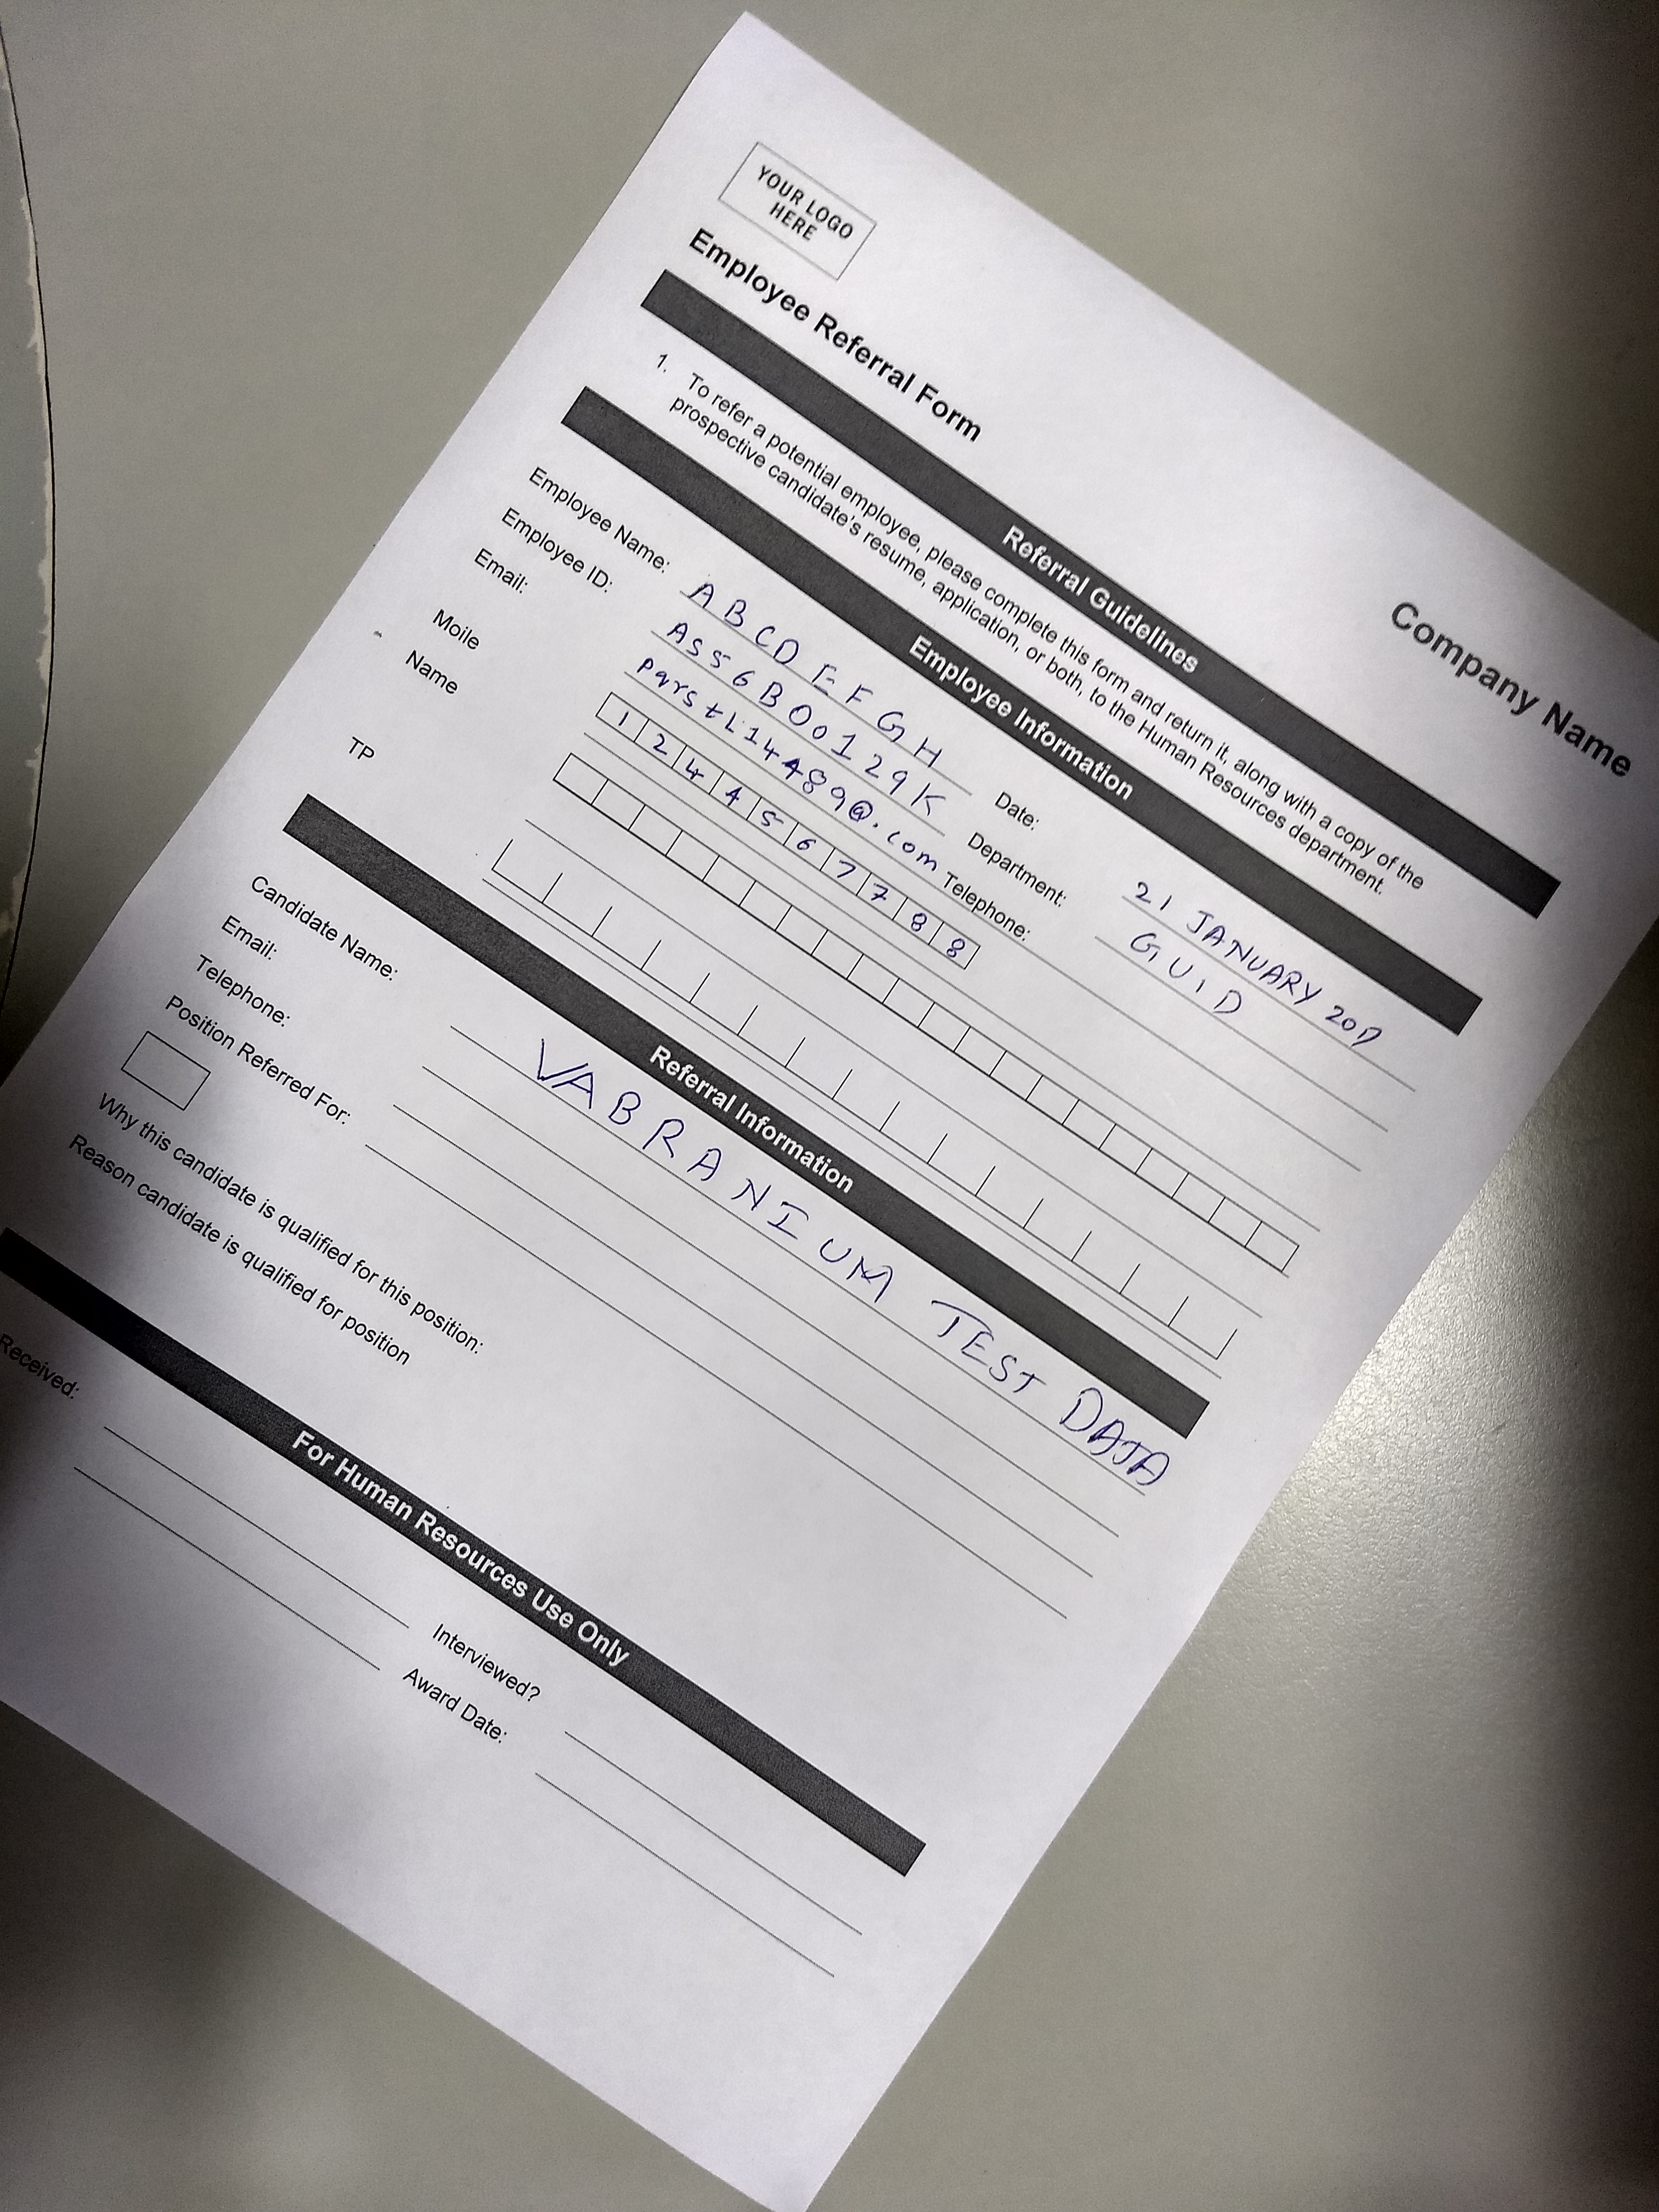 YOUR LOGO
HERE
Company Name
Employee Referral Form
Referral Guidelines
1. To refer a potential employee, please complete this form and return it, along with a copy of the
prospective candidate's resume, application, or both, to the Human Resources department.
Employee Information
Employee Name: ABCD EFGH Date: 21 JANUARY
Employee ID: AS56B00129K Department: GUID
Email: parstL14489@.com Telephone:
Moile 1244567788
Name
TP
Referral Information
Candidate Name: VABRANIUM TEST DATA
Email:
Telephone:
Position Referred For:
Why this candidate is qualified for this position:
Reason candidate is qualified for position
For Human Resources Use Only
Received: Interviewed?
Award Date: